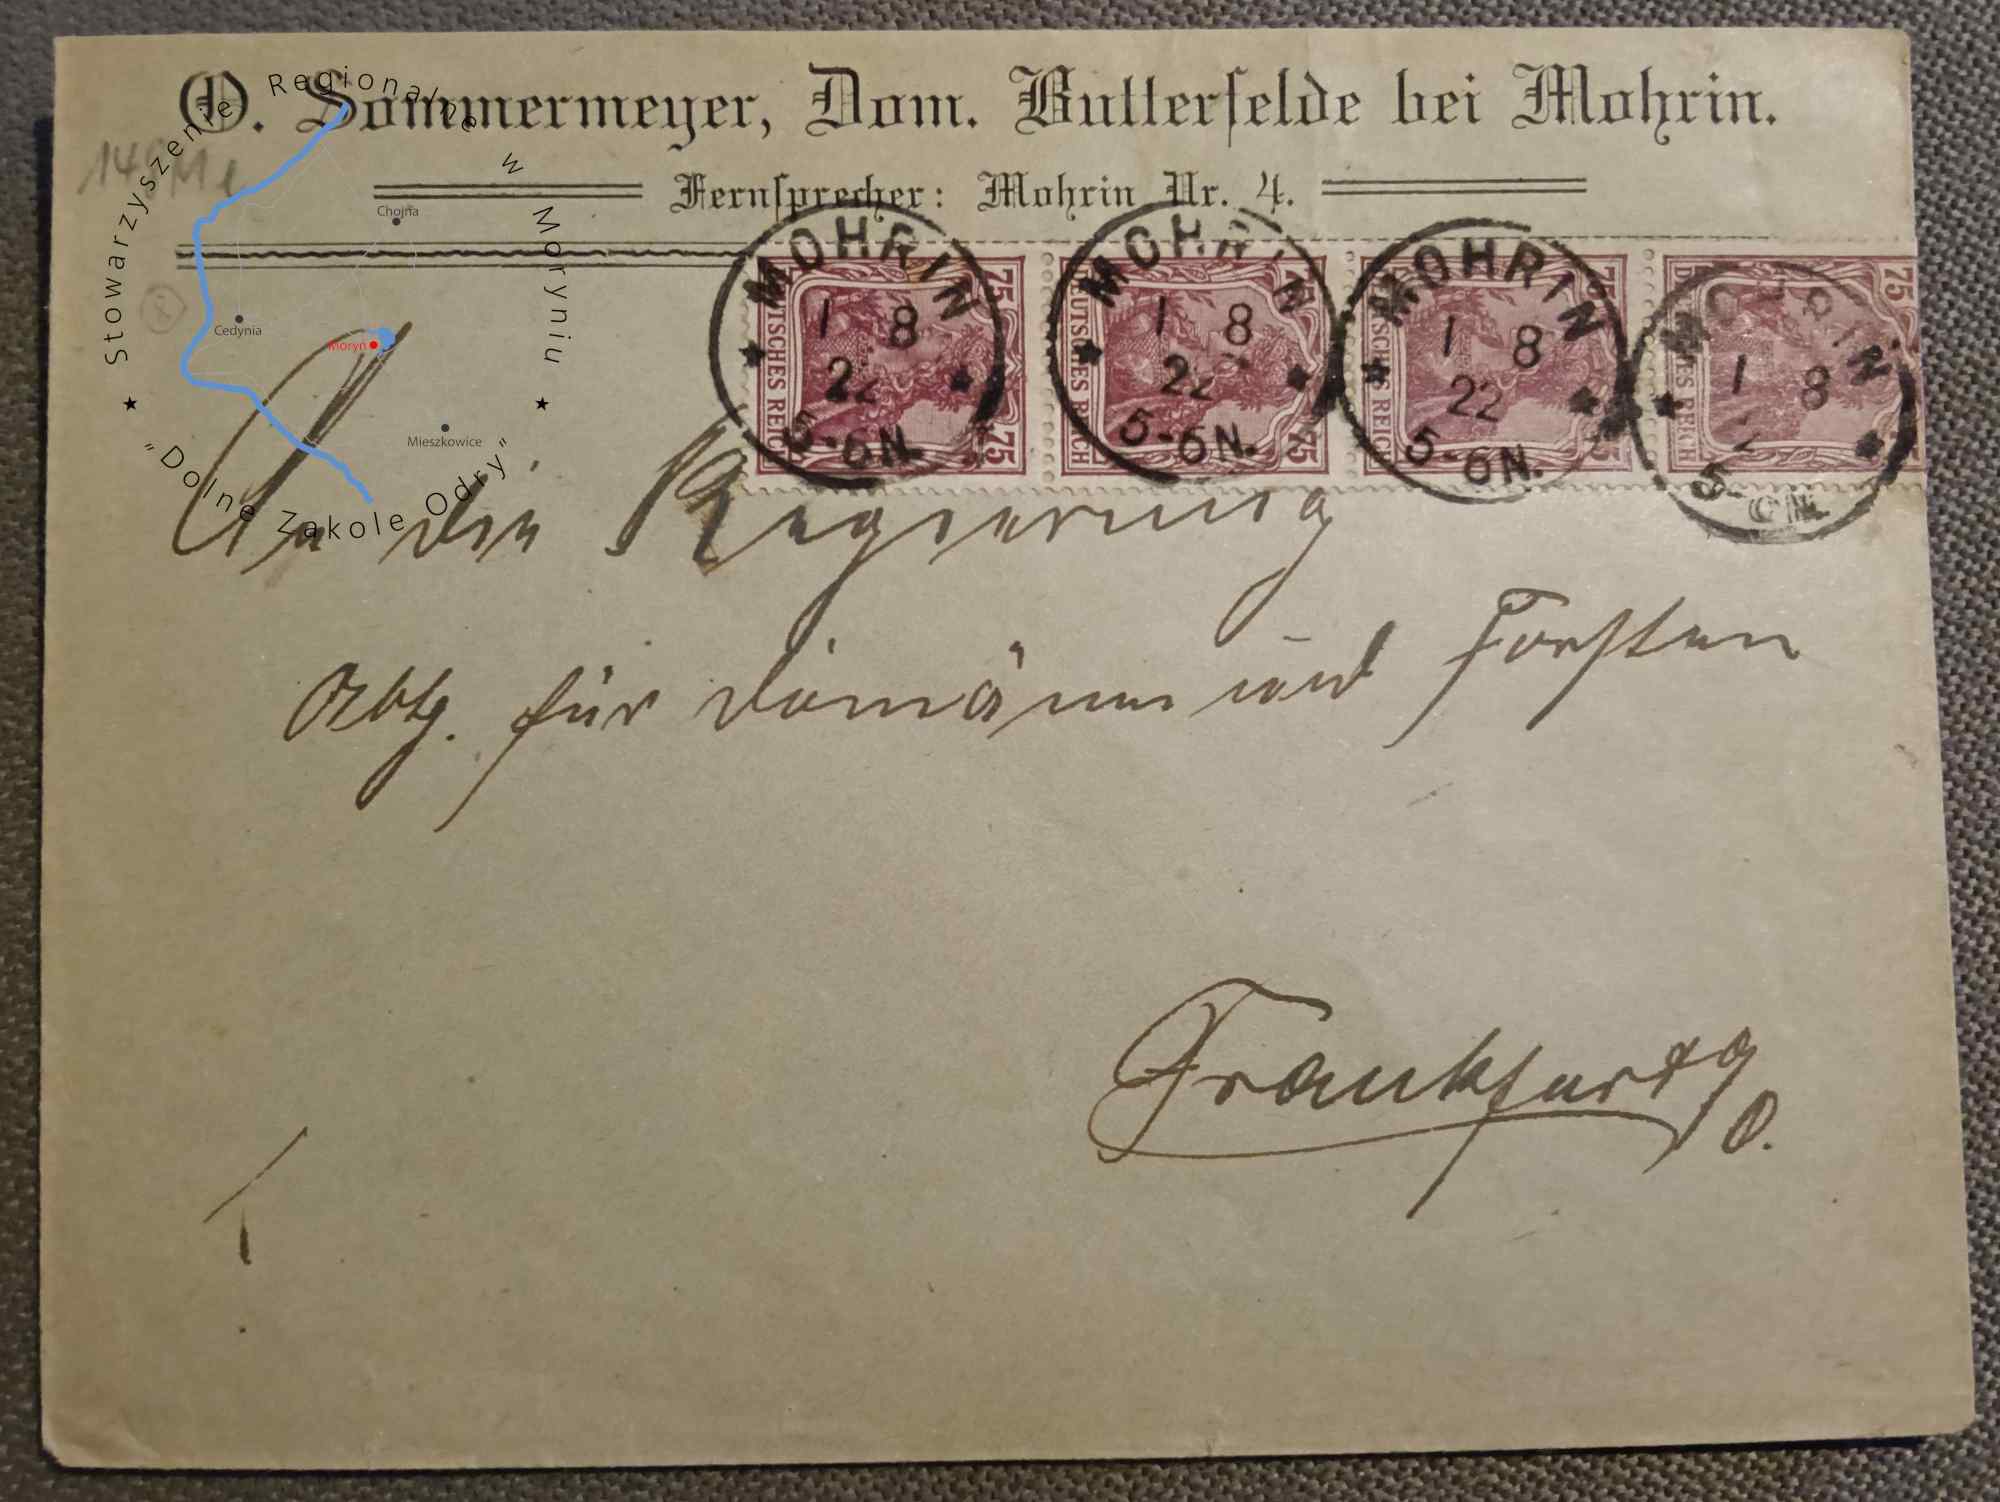 O. Sommermeyer, Dom. Butterfelde bei Mohrin.
Fernsprecher: Mohrin Nr. 4.
Stowarzyszenie Regionalne w Moryniu
"Dolne Zakole Odry"
Chojna
Cedynia
Moryń
Mieszkowice
MOHRIN
1 8
22
5-6N.
MOHRIN
1 8
22
5-6N.
MOHRIN
1 8
22
5-6N.
MOHRIN
1 8
5-6N.
75 DEUTSCHES REICH 75
75 DEUTSCHES REICH 75
75 DEUTSCHES REICH 75
75 DEUTSCHES REICH 75
An die Regierung
Abtg. für Domänen und Forsten
Frankfurt a/O.